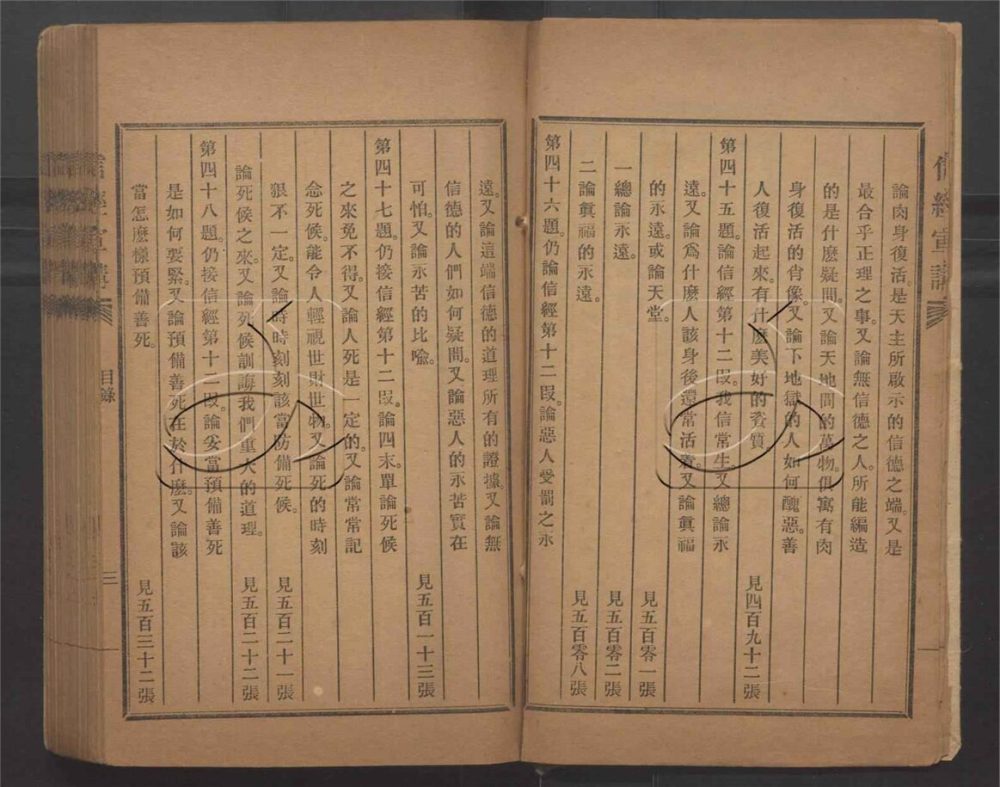 論肉身復活。是天主所啟示的信德之端。又是
最合乎正理之事。又論無信德之人。所能編造
的是什麽疑問。又論天地間的萬物。俱寓有肉
身復活的肖像。又論下地獄的人如何醜惡。善
人復活起來。有什麽美好的資質
見四百九十二張
第四十五題。論信經第十二段。我信常生。又總論永
遠。又論爲什麽人該身後還常活着。又論眞福
的永遠。或論天堂。
見五百零一張
一總論永遠。
見五百零二張
二論眞福的永遠。
見五百零八張
第四十六題。仍論信經第十二段。論惡人受罰之永
遠。又論這端信德的道理所有的證據。又論無
信德的人們如何疑問。又論惡人的永苦實在
可怕。又論永苦的比喩。
見五百一十三張
第四十七題。仍接信經第十二段。論四末。單論死候
之來免不得。又論人死是一定的。又論常常記
念死候。能令人輕視世財世物。又論死的時刻
狠不一定。又論時時刻刻該當防備死候。
見五百二十一張
論死候之來。又論死候訓誨我們重大的道理。
見五百二十二張
第四十八題。仍接信經第十二段。論妥當預備善死
是如何要緊。又論預備善死在於什麽。又論該
當怎麽樣預備善死。
見五百三十二張
目錄
三